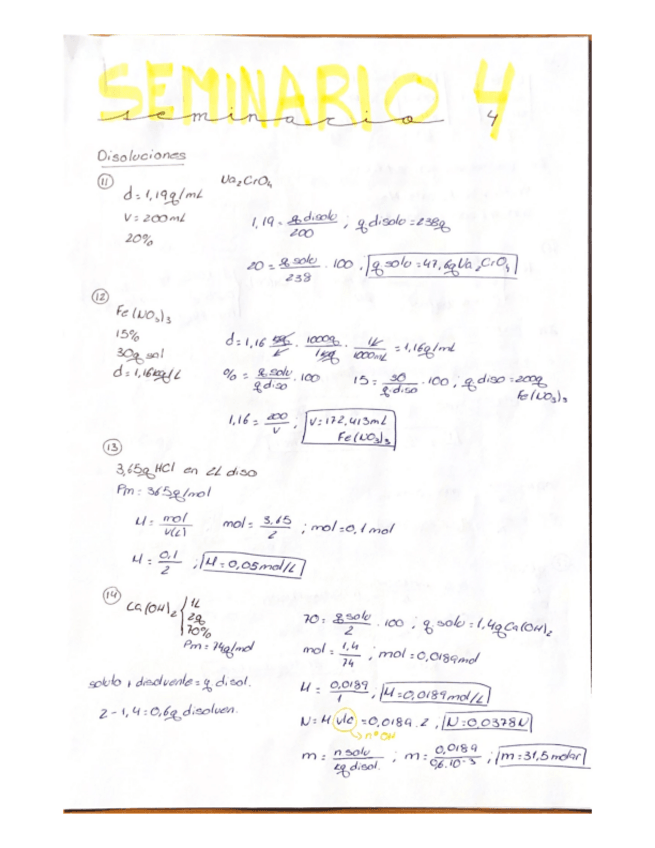 SEMINARIO 4
seminario 4
Disoluciones
11 Na2CrO4
d = 1,19g/mL
V = 200mL
20%
1,19 = g disolu / 200 ; g disolu = 238g
20 = g solu / 238 · 100 , g solu = 47,6g Na2CrO4
12
Fe(NO3)3
15%
30g sol
d = 1,16kg/L
d = 1,16 kg/L · 1000g/1kg · 1L/1000mL = 1,16g/mL
% = g solu / g diso · 100 15 = 30 / g diso · 100 ; g diso = 200g
Fe(NO3)3
1,16 = 200 / V ; V = 172,413mL
Fe(NO3)3
13
3,65g HCl en 2L diso
Pm = 36'5g/mol
M = mol / V(L) mol = 3,65 / 2 ; mol = 0,1 mol
M = 0,1 / 2 ; M = 0,05mol/L
14
Ca(OH)2 { 1L
2g
70%
Pm = 74g/mol
70 = g solu / 2 · 100 ; g solu = 1,4g Ca(OH)2
mol = 1,4 / 74 ; mol = 0,0189mol
soluto + disolvente = g disol.
M = 0,0189 / 1 ; M = 0,0189mol/L
2 - 1,4 = 0,6g disolven.
N = M · vlc = 0,0189 · 2 , N = 0,0378N
→ nº OH
m = n solu / kg disol. ; m = 0,0189 / 0,6·10⁻³ ; m = 31,5 molar